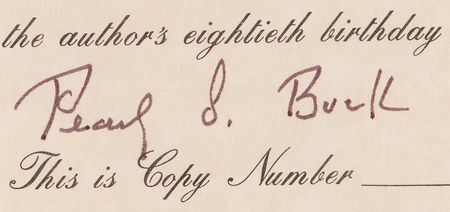 the author's eightieth birthday
Pearl S. Buck
This is Copy Number